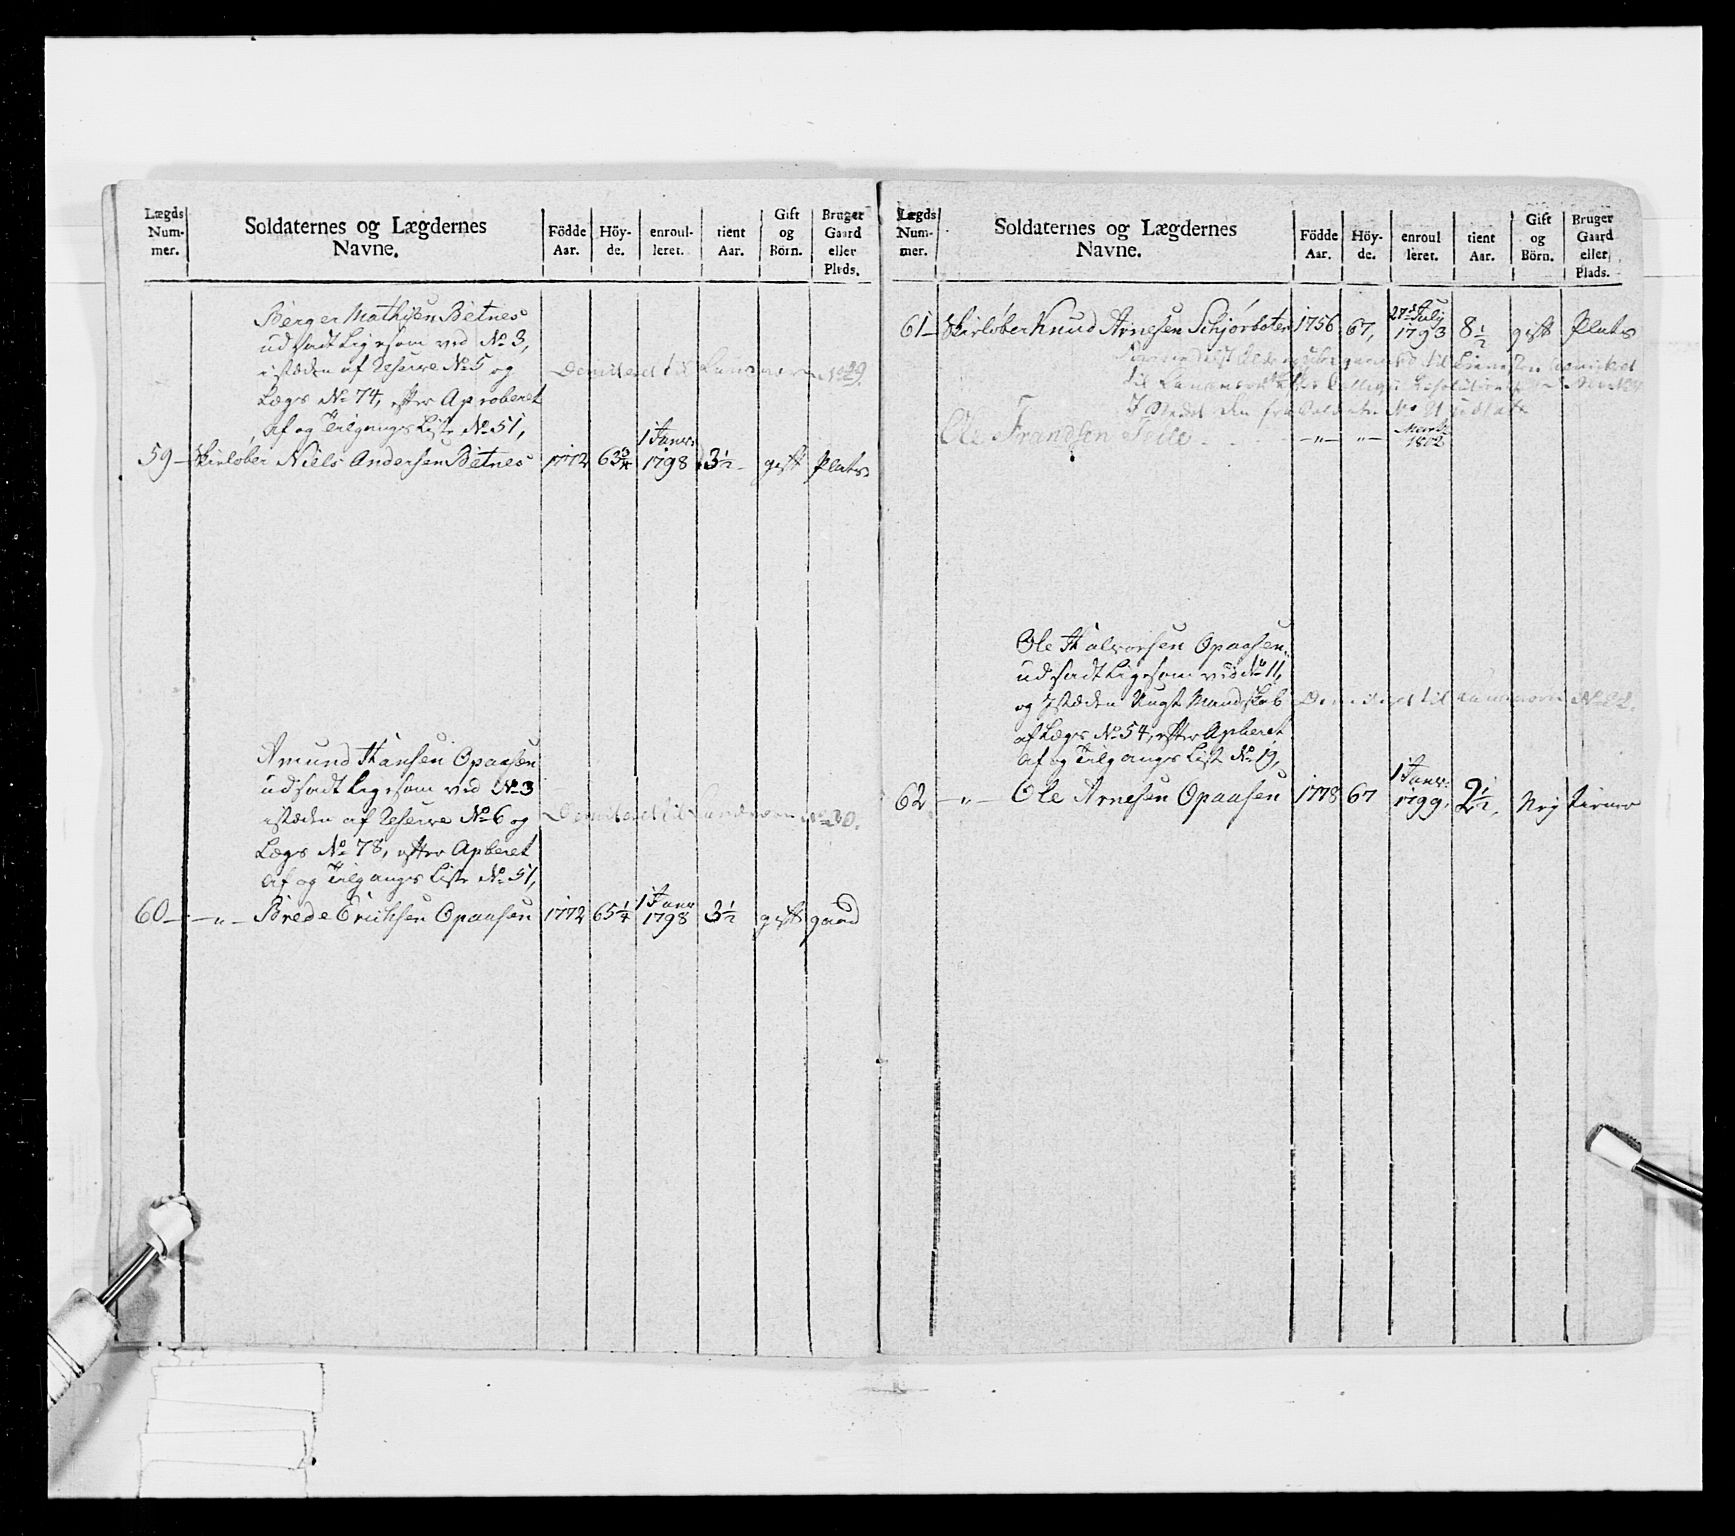 Lægds Num- mer.
Soldaternes og Lægdernes Navne.
Födde Aar.
Höy- de.
enroul- leret.
tient Aar.
Gift og Börn.
Bruger Gaard eller Plads.
Berger Mathisen Betnes
udsadt Ligesom ved No 3,
istæden af Reserve No 5 og
Lægs No 74, efter Aproberet
Af og Tilgangs Liste No 51,
til No 29.
59 – Skieløber Niels Andersen Betnes 1772 63 3/4 1 Janr: 1798 3 1/2 gift Plads
Amund Hansen Opaasen
udsadt Ligesom ved No 3
istæden af Reserve No 6 og
Lægs No 78, efter Apberet
Af og Tilgangs Liste No 51,
til No 30.
60 – „ – Brede Erichsen Opaasen 1772 65 1/4 1 Janr 1798 3 1/2 gift gaard
Lægds Num- mer.
Soldaternes og Lægdernes Navne.
Födde Aar.
Höy- de.
enroul leret.
tient Aar.
Gift og Börn.
Bruger Gaard eller Plads.
61 – Skieløber Knud Arnesen Schjørboten 1756 67, 27de July 1793 8 1/2 gift Plads
Ole Frandsen – „ – – „ – Marts 1802
Ole Halvorsen Opaasen
udsadt Ligesom ved No 11,
og Istæden Ungt Mandskab
af Lægs No 54, efter Apberet
Af og Tilgangs List No 19,
til
62 – „ – Ole Arnesen Opaasen 1778 67 1 Janr: 1799, 2 1/2, Ney